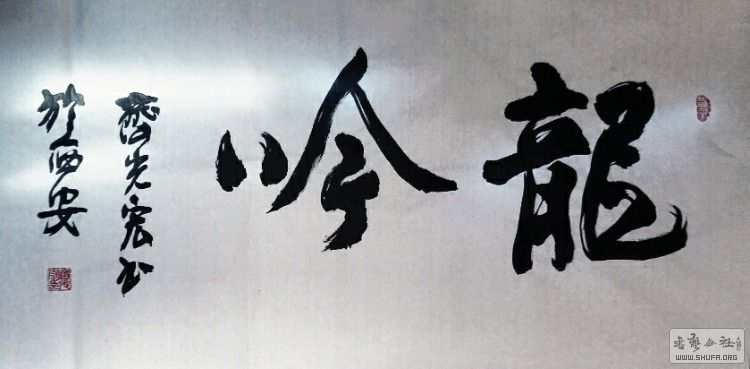 龍吟
齊光宏书
於西安
书艺公社
WWW.SHUFA.ORG